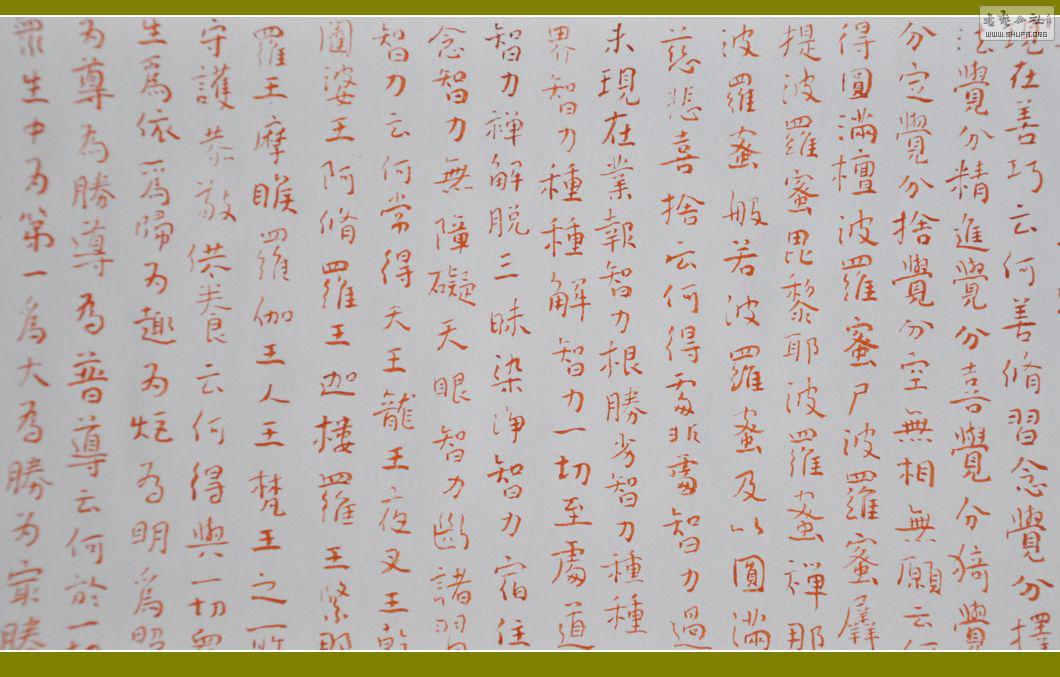 現在善巧云何善脩習念覺分擇
法覺分精進覺分喜覺分猗覺
分定覺分捨覺分空無相無願云何
得圓滿檀波羅蜜尸波羅蜜羼
提波羅蜜毘黎耶波羅蜜禅那
波羅蜜般若波羅蜜及以圓滿
慈悲喜捨云何得處非處智力過
未現在業報智力根勝劣智力種種
界智力種種解智力一切至處道
智力禅解脱三昧染淨智力宿住
念智力無障礙天眼智力斷諸習
智力云何常得天王龍王夜叉王乾
闥婆王阿脩羅王迦樓羅王緊那
羅王摩睺羅伽王人王梵王之所
守護恭敬供養云何得與一切衆
生爲依爲歸为趣为炬为明爲照
为導为勝導为普導云何於一切
眾生中为第一爲大为勝为最勝
书艺公社
WWW.SHUFA.ORG